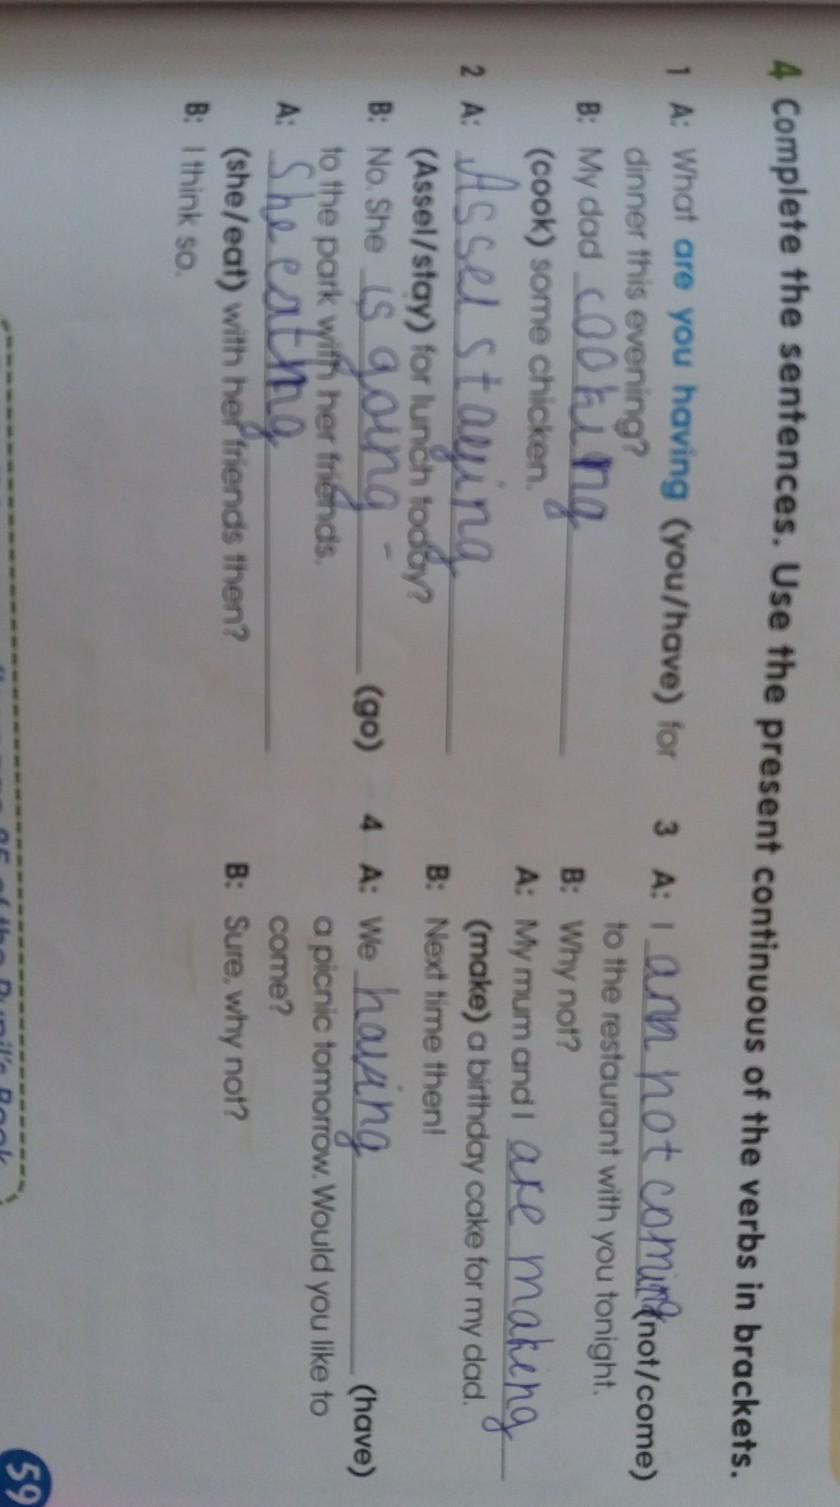 4 Complete the sentences. Use the present continuous of the verbs in brackets.
1 A: What are you having (you/have) for
dinner this evening?
B: My dad cooking
(cook) some chicken.
2 A: Assel staying
(Assel/stay) for lunch today?
B: No. She is going (go)
to the park with her friends.
A: She eating
(she/eat) with her friends then?
B: I think so.
3 A: I am not coming (not/come)
to the restaurant with you tonight.
B: Why not?
A: My mum and I are making
(make) a birthday cake for my dad.
B: Next time then!
4 A: We having (have)
a picnic tomorrow. Would you like to
come?
B: Sure, why not?
of the Pupil's Book
59